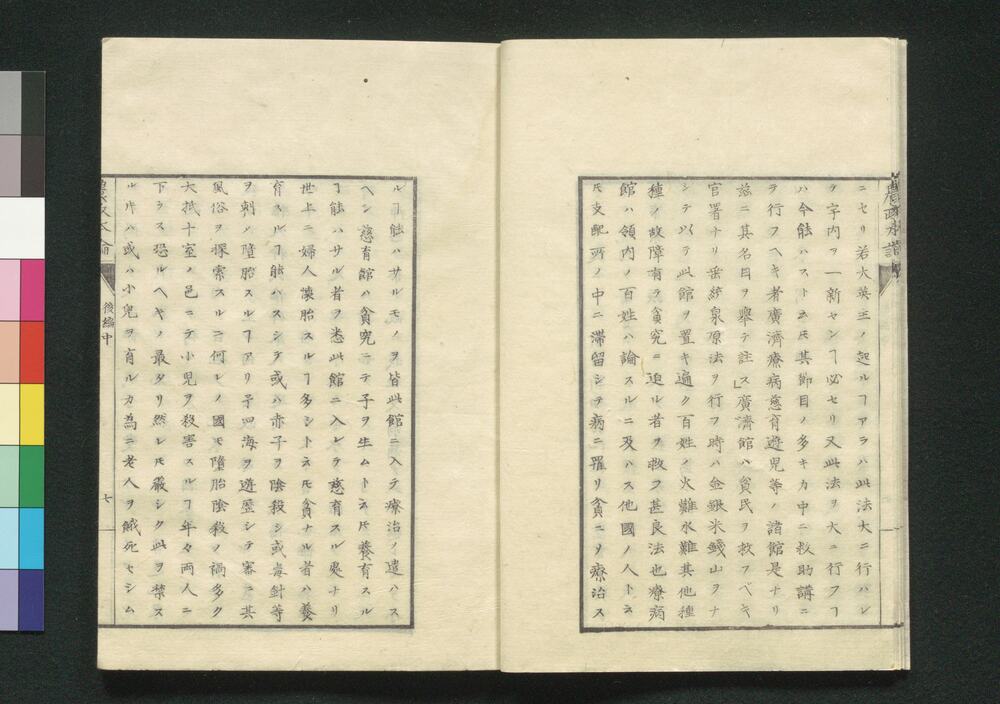 ニセリ若大英主ノ起ルヿアラハ此法大ニ行ハレ
テ宇内ヲ一新センヿ必セリ又此法ヲ大ニ行フヿ
ハ今能ハスト云𪜈其節目ノ多キカ中ニ救助講ニ
テ行フヘキ者廣濟療病慈育遊児等ノ諸館是ナリ
茲ニ其名目ヲ擧テ註ス」廣濟館ハ貧民ヲ救フベキ
官署ナリ垂統泉原法ヲ行フ時ハ金銀米錢山ヲナ
シテ以テ此館ヲ置キ遍ク百姓ノ火難水難其他種
種ノ故障有テ貧究ニ迫ル者ヲ救フ甚良法也療病
館ハ領内ノ百姓ハ論スルニ及ハス他國ノ人トニ
モ支配所ノ中ニ滞留シテ病ニ罹リ貧ニソ療治ス
ルヿ能ハサルモノヲ皆此館ニ入テ療治ノ遣ハス
ヘシ慈育館ハ貧究ニテ子ヲ生ムト云𪜈養育スル
ヿ能ハサル者ヲ悉此館ニ入レテ慈育スル処ナリ
世上ニ婦人懐胎スルヿ多シト云𪜈貧ナル者ハ養
育スルヿ能ハスシテ或ハ赤子ヲ陰殺シ或毒針等
ヲ刺メ堕胎スルヿアリ予四海ヲ遊歴シテ審ニ其
風俗ヲ探索スルニ何レノ國モ堕胎陰殺ノ禍多ク
大抵十室ノ邑ニテ小児ヲ殺害スルヿ年々両人ニ
下ラス恐ルヘキノ最タリ然レ𪜈嚴シク此ヲ禁ス
ル片ハ或ハ小児ヲ育ルカ為ニ老人ヲ餓死セシム
後編中
七